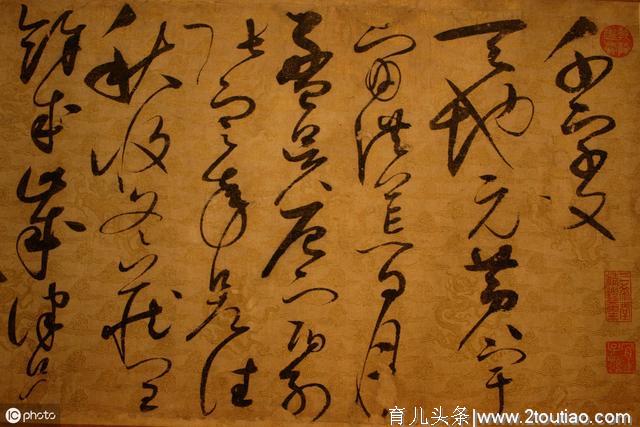 千字文
天地元黃宇
宙洪荒日月
盈昃辰宿列
張寒來暑往
秋收冬藏閏
餘成歲律呂
iC photo
育儿头条 www.2toutiao.com